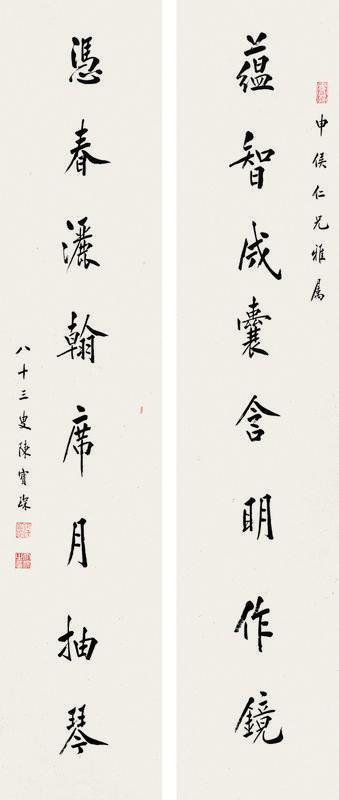 申侯仁兄雅属
蕴智成囊含明作鏡
憑春灑翰席月抽琴
八十三叟陳寶琛